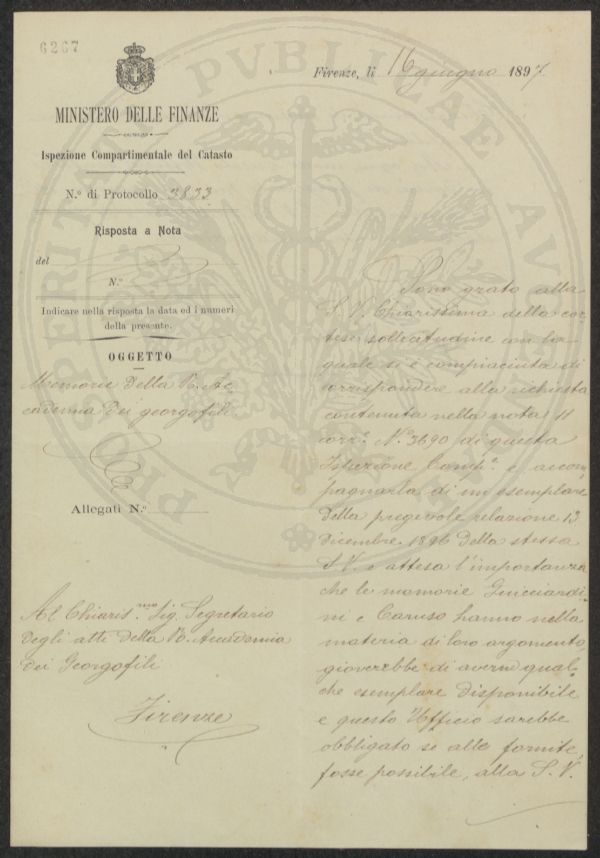 6267
Firenze, li 16 giugno 1897
MINISTERO DELLE FINANZE
Ispezione Compartimentale del Catasto
N.º di Protocollo 3833
Risposta a Nota
del
N.º
Indicare nella risposta la data ed i numeri
della presente.
OGGETTO
Memorie della R. Ac
cademia dei georgofili
Allegati N.º
Al Chiaris.mo Sig. Segretario
degli atti della R. Accademia
dei Georgofili
Firenze
Sono grato alla
S. V. Chiarissima della cor
tese sollecitudine con la
quale si è compiaciuta di
corrispondere alla richiesta
contenuta nella nota 11
corr.e N.º 3690 di questa
Ispezione Comp.e e accom
pagnarla di un esemplare
della pregevole relazione 13
dicembre 1896 della stessa
S. V. e attesa l'importanza
che le memorie Guicciardi
ni e Caruso hanno nella
materia di loro argomento,
gioverebbe di averne qual
che esemplare disponibile
e questo Ufficio sarebbe
obbligato se alle fornite,
fosse possibile, alla S. V.
PROSPERITATI PVBLICAE AVGENDAE